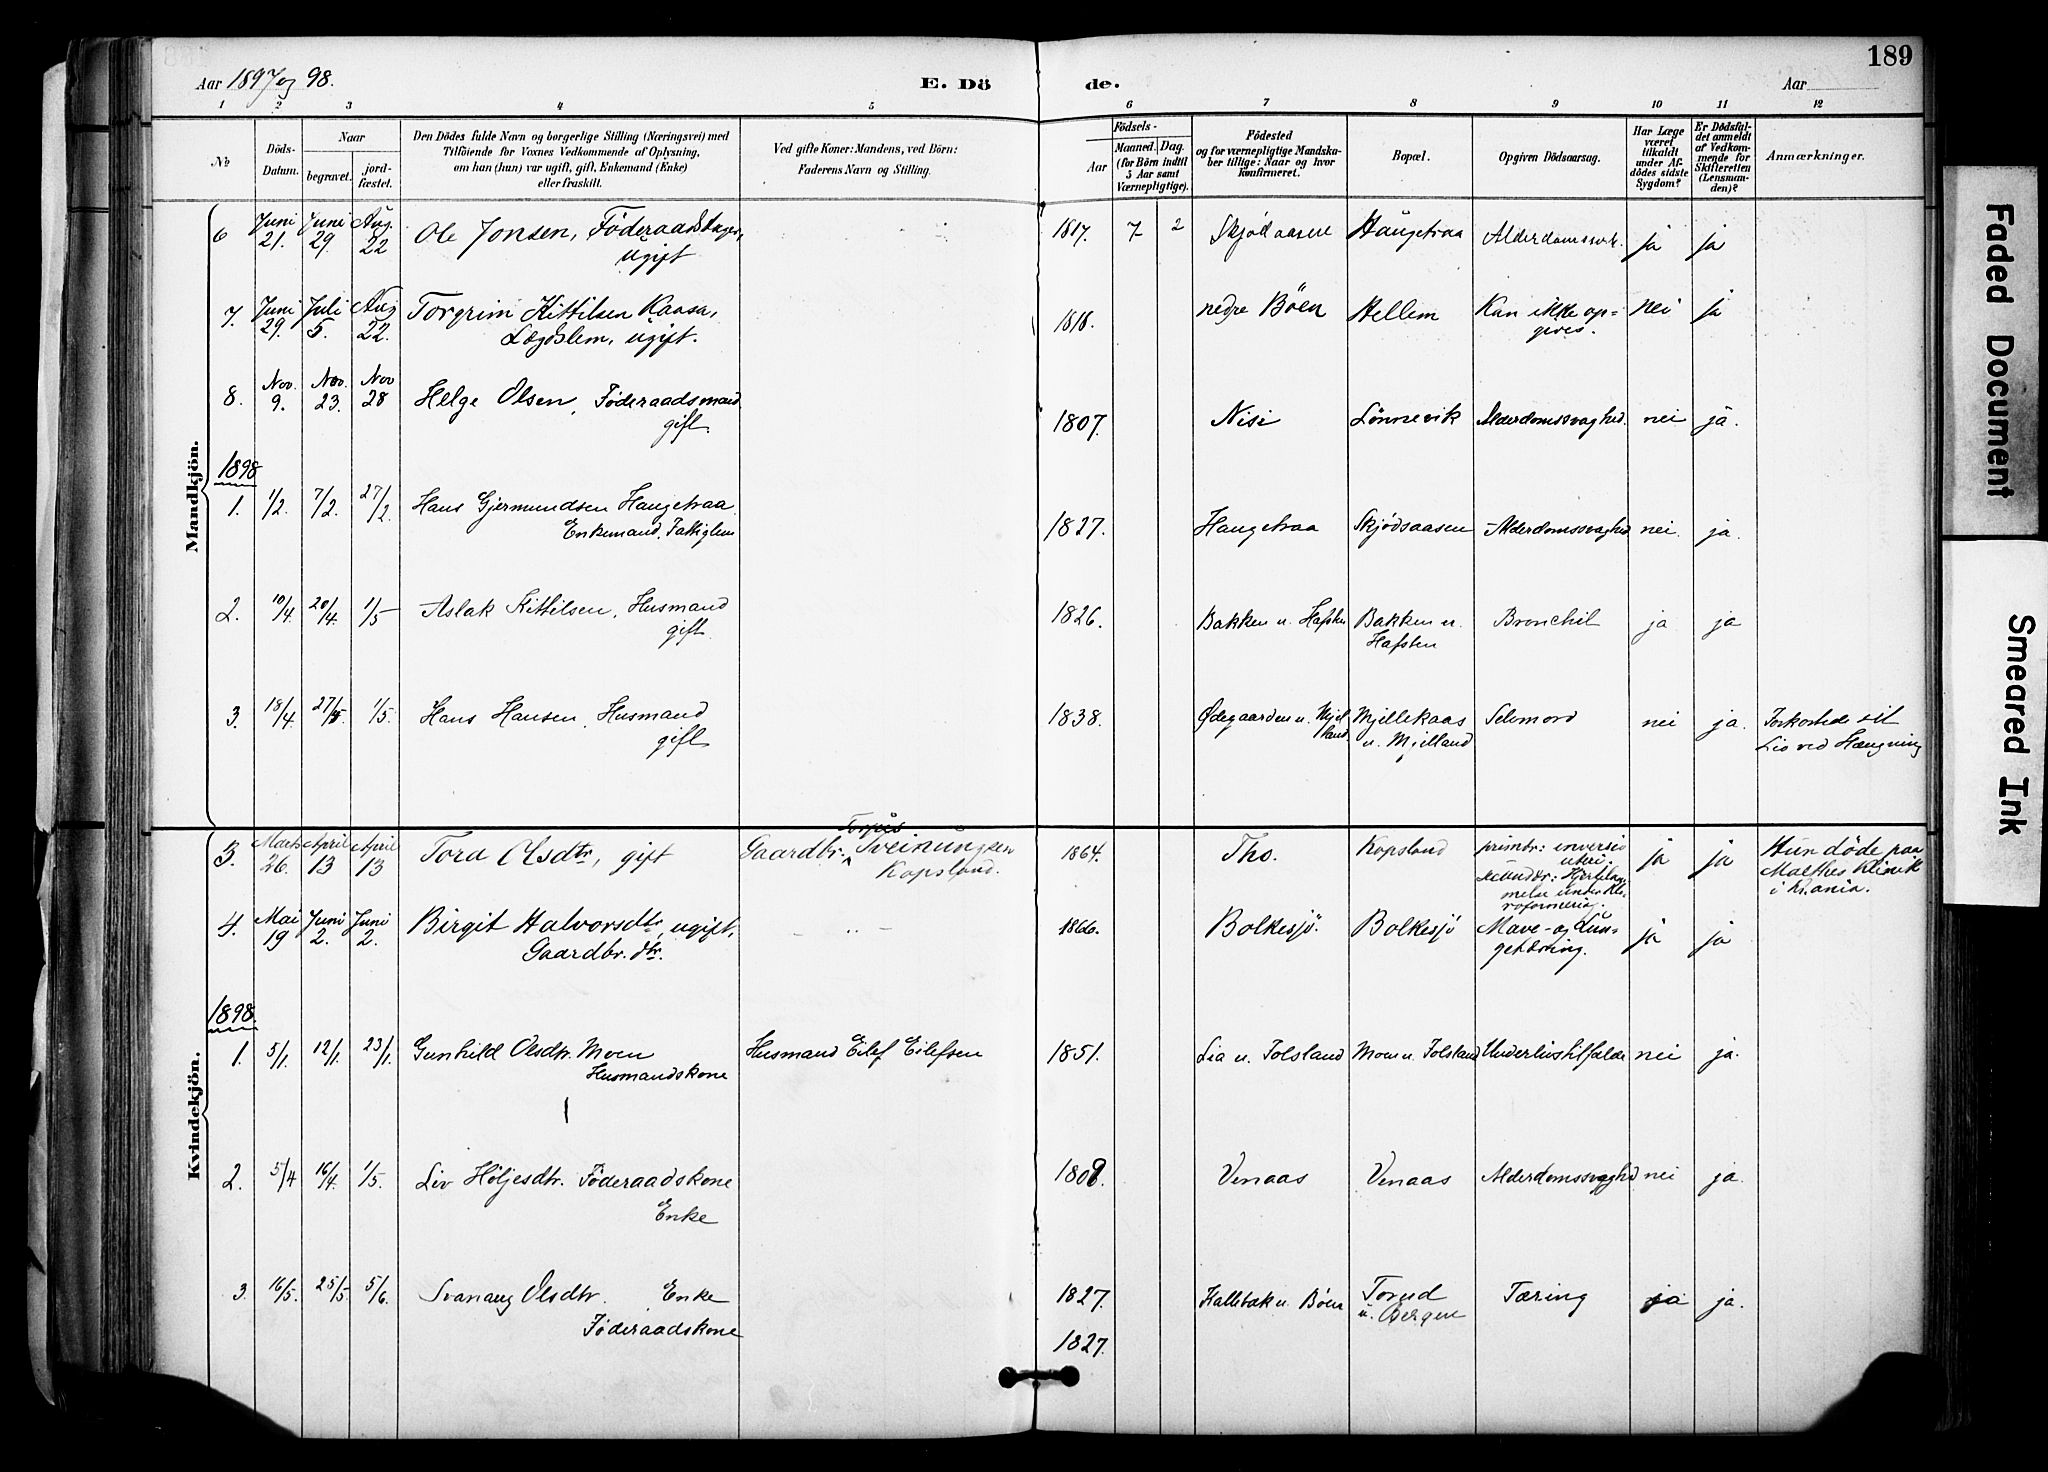 189
Aar 1897 og 98.
E. Dö
de.
Aar
1 2 3 4 5 6 7 8 9 10 11 12
No
Döds-Datum.
Naar
begravet.
jord-fæstet.
Den Dödes fulde Navn og borgerlige Stilling (Næringsvei) med
Tilföiende for Voxnes Vedkommende af Oplysning,
om han (hun) var ugift, gift, Enkemand (Enke)
eller fraskilt.
Ved gifte Koner: Mandens, ved Börn:
Faderens Navn og Stilling.
Födsels-
Aar
Maaned. Dag.
(for Börn indtil
5 Aar samt
Værnepligtige).
Födested
og for værnepligtige Mandska-
ber tillige: Naar og hvor
konfirmeret.
Bopæl.
Opgiven Dödsaarsag.
Har Læge
været
tilkaldt
under Af-
dödes sidste
Sygdom?
Er Dödsfal-
det anmeldt
af Vedkom-
mende for
Skifteretten
(Lensman-
den)?
Anmærkninger.
Mandkjön.
6 Juni 21. Juni 29. Aug. 22 Ole Jonsen, Föderaadstager, ugift 1817. 7 2 Skjödsaasen Haugetraa Alderdomssv. ja ja
7. Juni 29. Juli 5. Aug 22. Torgrim Kittilsen Kaasa, Lægdslem, ugift. 1818. nedre Böen Hellem Kan ikke op=gives. nei ja
8. Nov. 9. Nov. 23. Nov 28 Helge Olsen, Föderaadsmand gift. 1807. Nisi Lönnevik Alderdomssvaghed. nei ja.
1898
1. 1/2. 7/2. 27/2. Hans Gjermundsen Haugetraa Enkemand. Fattiglem 1827. Haugetraa Skjödsaasen Alderdomssvaghed nei. ja.
2. 10/4. 20/4. 1/5 Aslak Kittilsen, Husmand gift. 1826. Bakken u. Hafsten Bakken u. Hafsten Bronchit ja ja
3. 18/4. 27/5. 1/5. Hans Hansen, Husmand gift 1838. Ødegaarden u. Mjelland. Mjellekaas u. Mjelland Selvmord nei ja. Forkortede sit Liv ved Hængning
Kvindekjön.
3. Marts 26. April 13 April 13 Tora Olsdtr, gift Gaardbr. Torjus Sveinungsen Kopsland. 1864. Tho. Kopsland primær: inversio uteri. secundær: Hjertelammelse under Kloroformering. ja ja Hun döde paa Malthes Klinik i Kr.ania.
4. Mai 19 Juni 2. Juni 2. Birgit Halvorsdtr, ugift, Gaardbr. dtr. - " - 1866. Bolkesjö. Bolkesjö Mave- og Lungetæring. ja ja
1898.
1. 5/1. 12/1. 23/1. Gunhild Olsdtr. Moen Husmandskone Husmand Eilef Eilefsen 1851. Lia u. Folsland Moen u. Folsland Underlivstilfælde nei ja.
2. 5/4 16/4. 1/5. Liv Höljesdtr. Föderaadskone Enke 1808. Venaas Venaas Alderdomssvaghed nei ja.
3. 16/5. 25/5. 5/6. Svanaug Olsdtr. Enke Föderaadskone 1827. Kallebak u. Böen Torud u. Bergen Tæring ja ja.
1827.
Faded Document
Smeared Ink